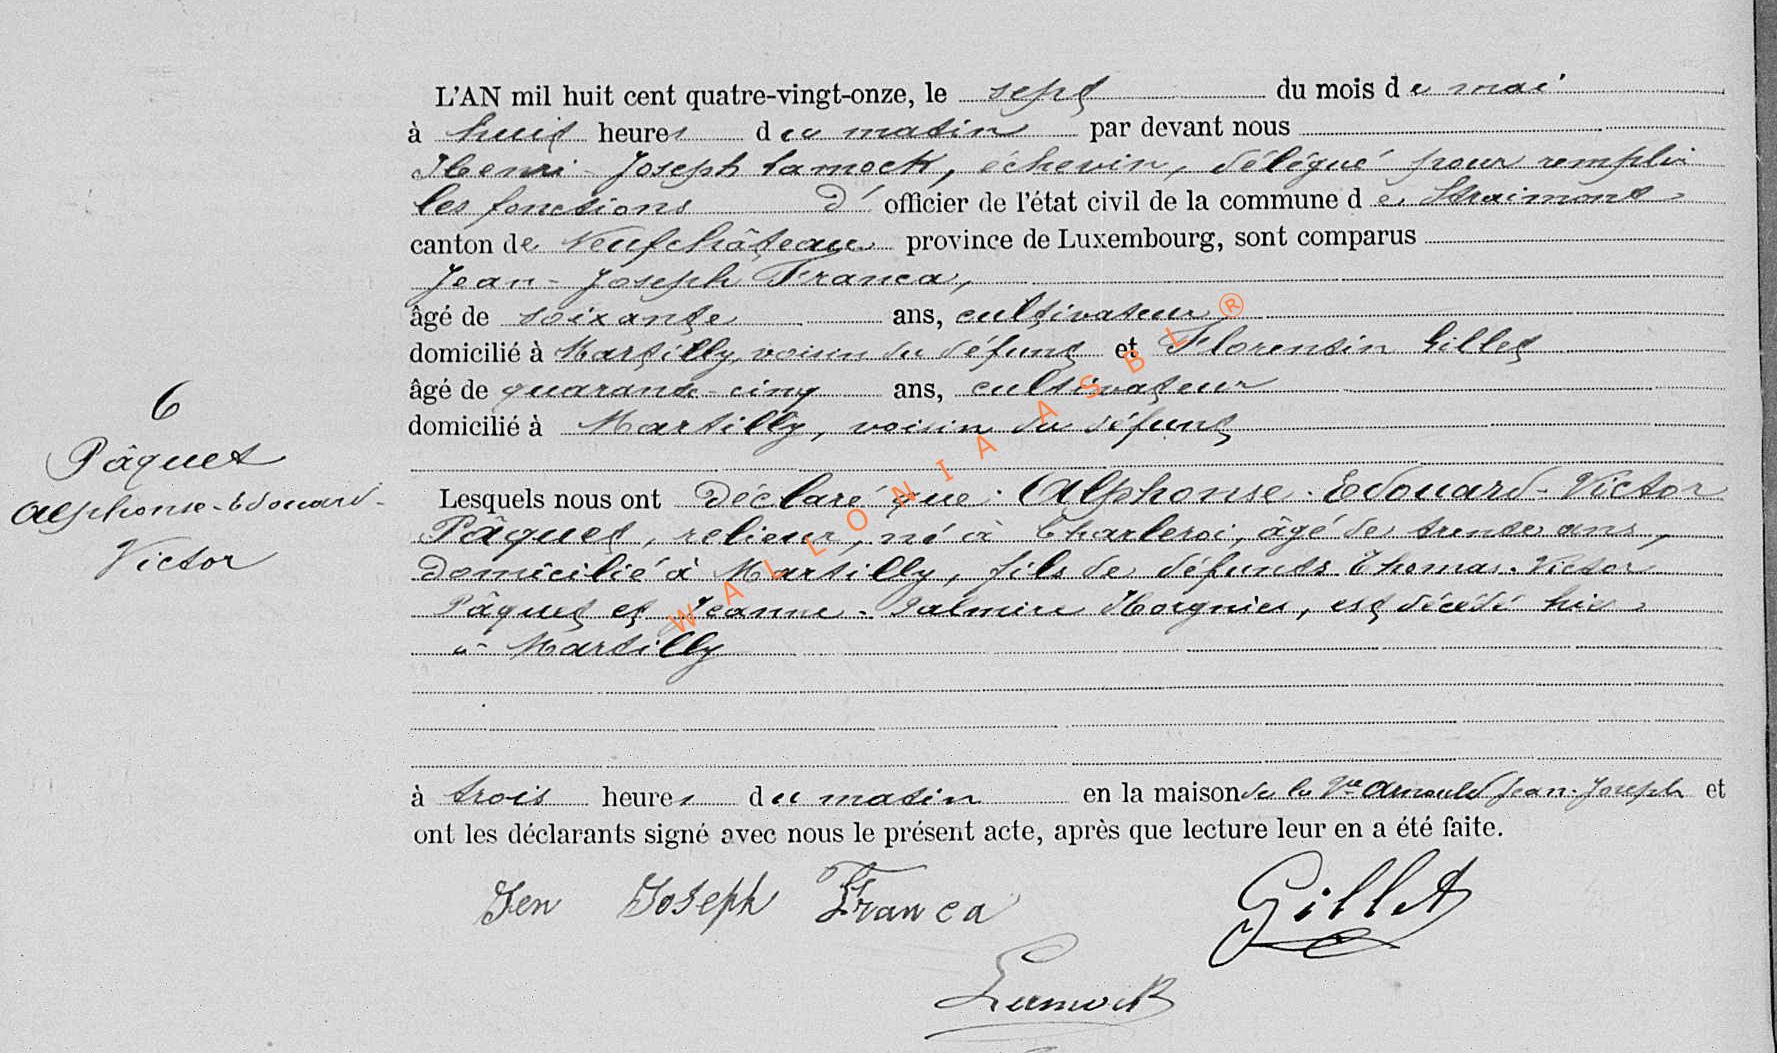 L'AN mil huit cent quatre-vingt-onze, le sept du mois de mai
à huit heures du matin par devant nous
Henri-Joseph Lamock, échevin, délégué pour remplir
les fonctions d'officier de l'état civil de la commune de Straimont
canton de Neufchâteau province de Luxembourg, sont comparus
Jean-Joseph Franca,
âgé de soixante ans, cultivateur
domicilié à Martilly, voisin du défunt et Florentin Gillet
âgé de quarante-cinq ans, cultivateur
domicilié à Martilly, voisin du défunt
6
Pâquet
Alphonse-Edouard-
Victor
Lesquels nous ont déclaré que Alphonse-Edouard-Victor
Pâquet, relieur, né à Charleroi, âgé de trente ans,
domicilié à Martilly, fils de défunts Thomas-Victor
Pâquet et Jeanne-Palmire Hoignies, est décédé hier
à Martilly
à trois heures du matin en la maison de la Vve Arnould Jean-Joseph et
ont les déclarants signé avec nous le présent acte, après que lecture leur en a été faite.
Jen Joseph Franca
Gillet
Lamock
WALLONIA ASBL ®